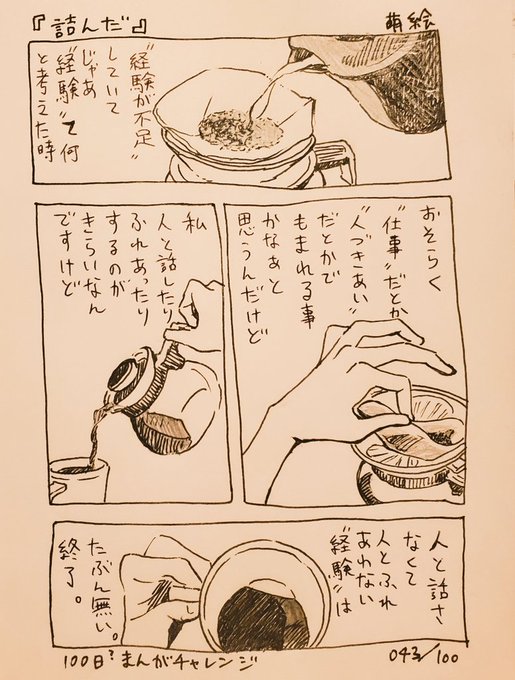 『詰んだ』
萌絵
“経験が不足”
していて
じゃあ
“経験”て何
と考えた時
おそらく
“仕事”だとか
“人づきあい”
だとかで
もまれる事
かなぁと
思うんだけど
私
人と話したり
ふれあったり
するのが
きらいなん
ですけど
人と話さ
なくて
人とふれ
あわない
“経験”は
たぶん無い。
終了。
100日?まんがチャレンジ
043/100